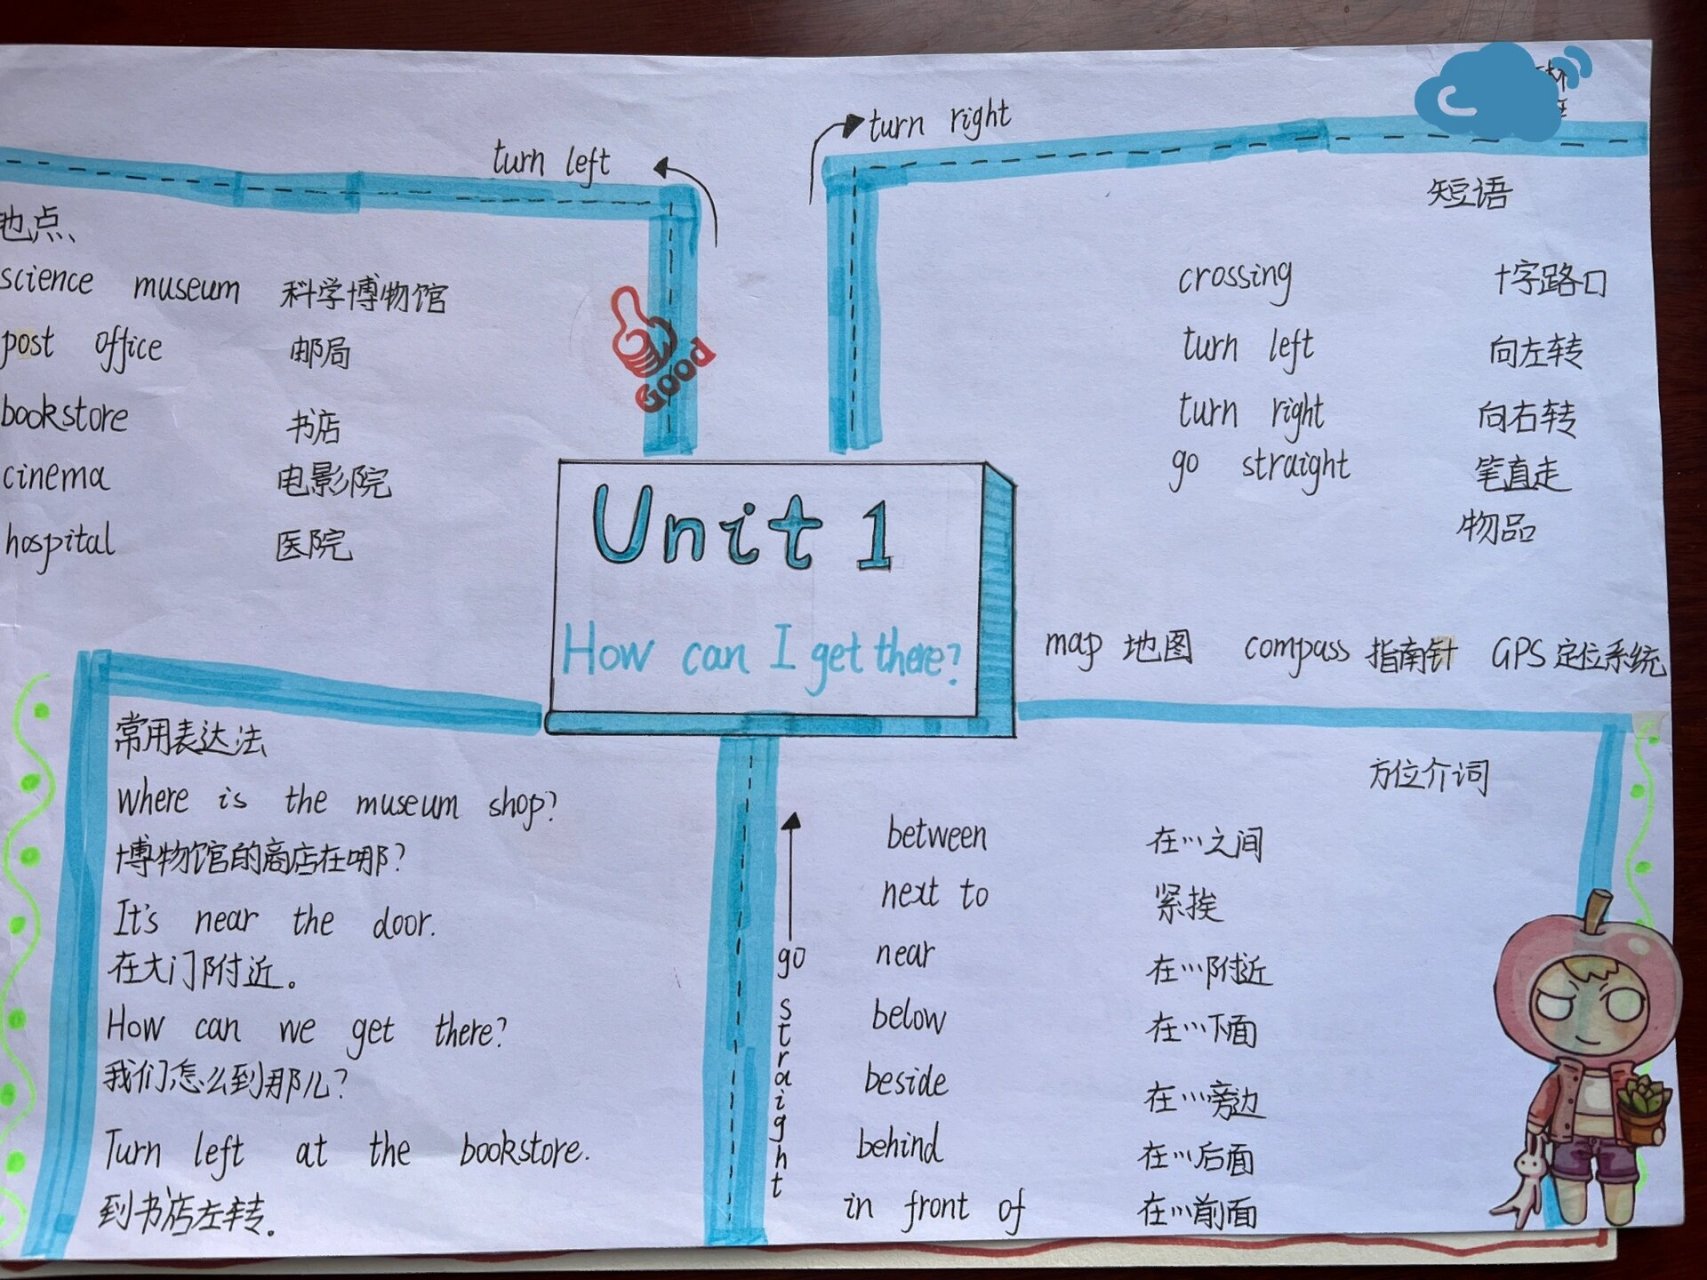 turn left
turn right
地点
science museum 科学博物馆
post office 邮局
bookstore 书店
cinema 电影院
hospital 医院
Good
短语
crossing 十字路口
turn left 向左转
turn right 向右转
go straight 笔直走
物品
map 地图 compass 指南针 GPS 定位系统
Unit 1
How can I get there?
常用表达法
where is the museum shop?
博物馆的商店在哪?
It's near the door.
在大门附近。
How can we get there?
我们怎么到那儿?
Turn left at the bookstore.
到书店左转.
go straight
方位介词
between 在…之间
next to 紧挨
near 在…附近
below 在…下面
beside 在…旁边
behind 在…后面
in front of 在…前面